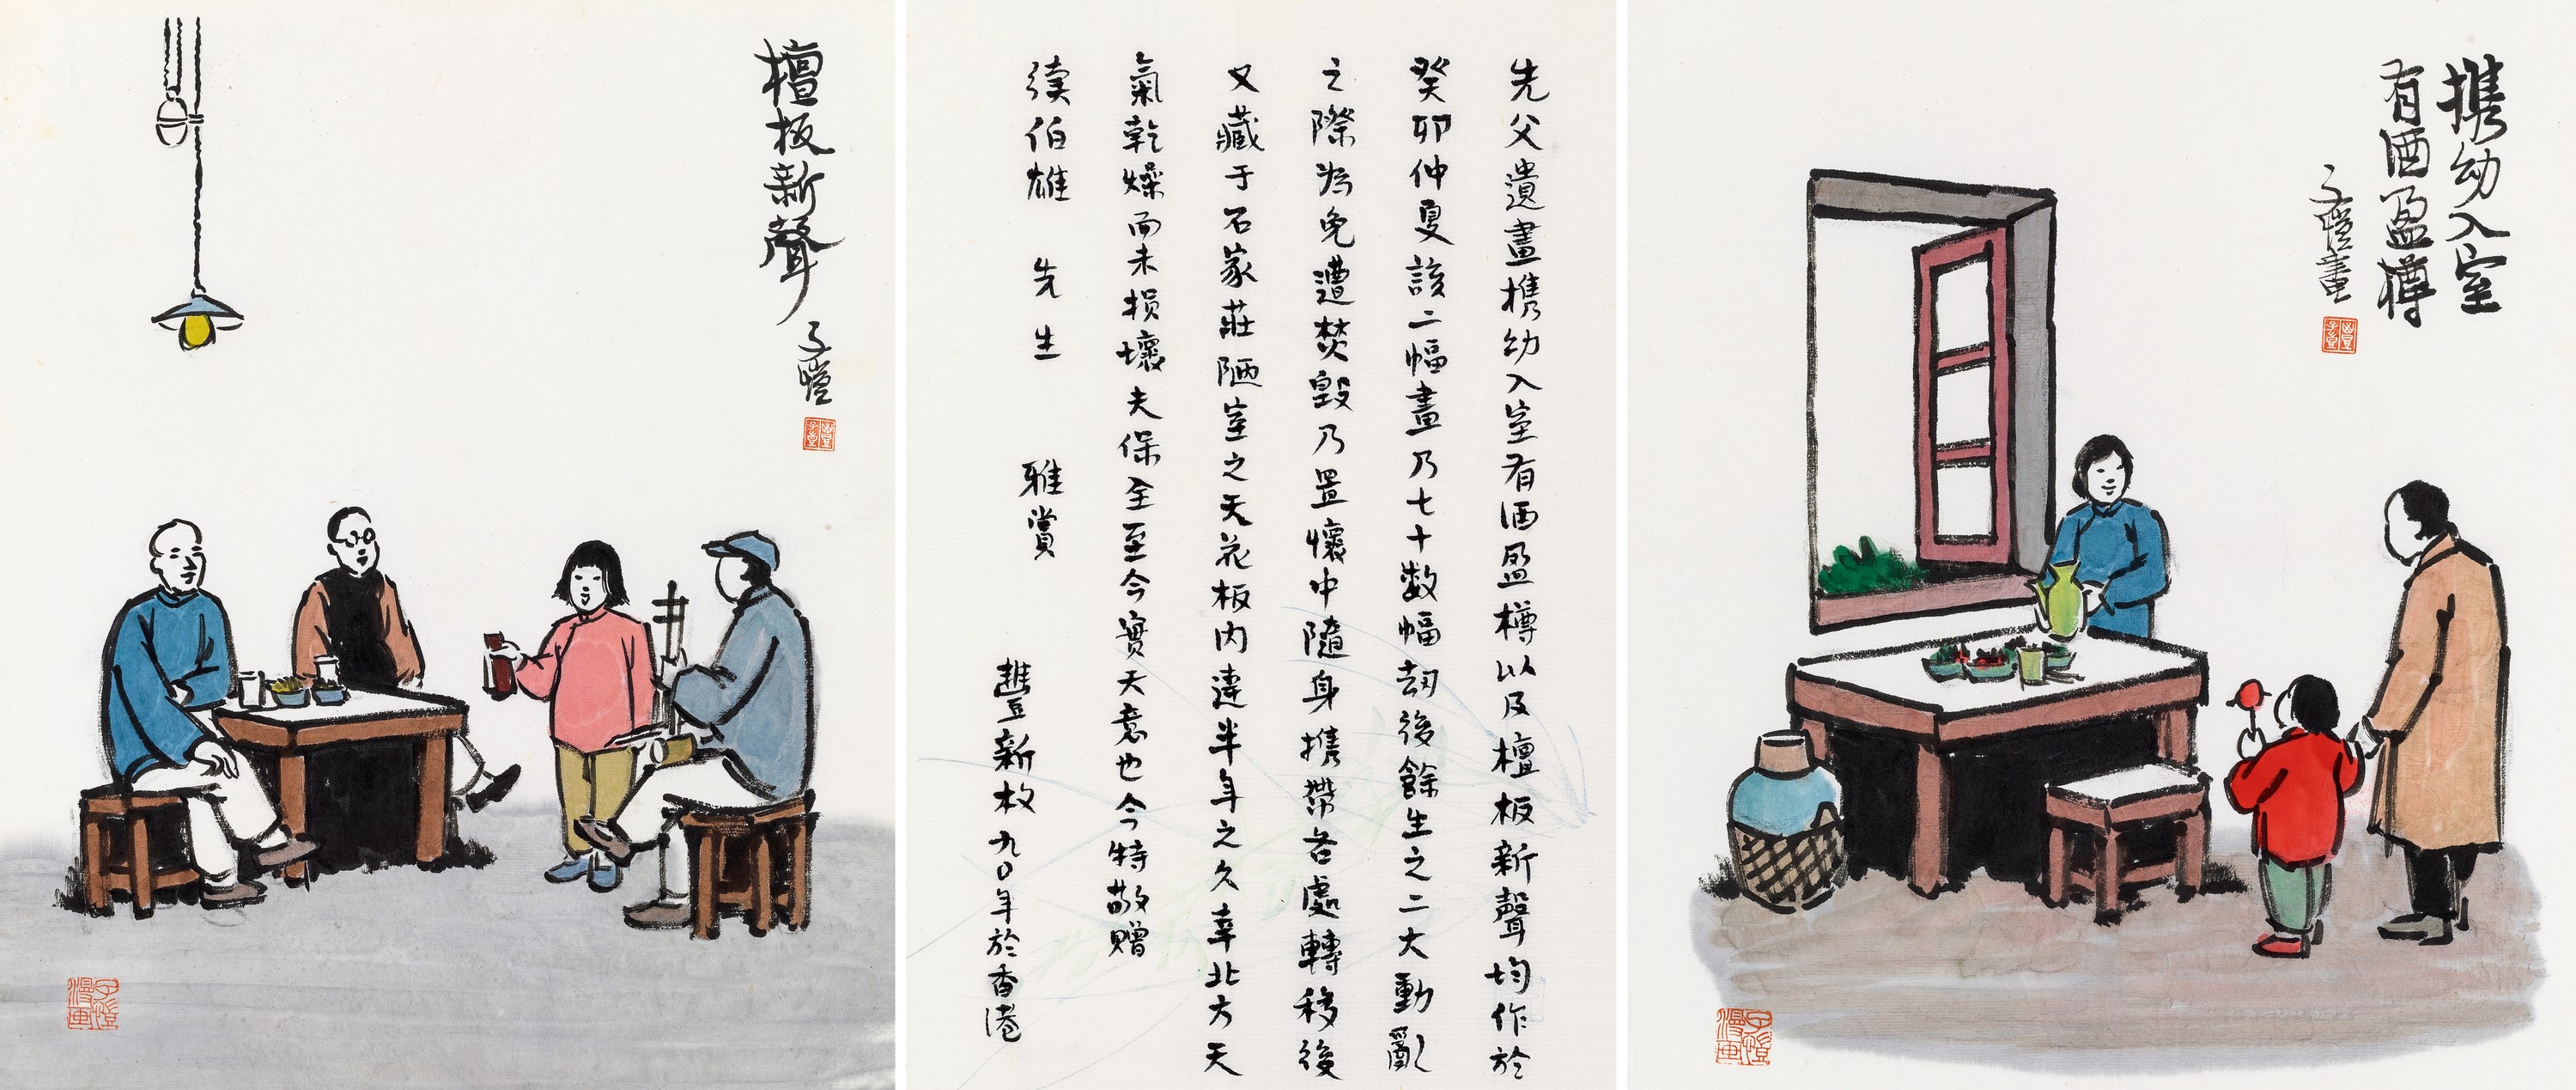 檀板新聲
子愷
豐子愷
子愷漫画
先父遺畫携幼入室有酒盈樽以及檀板新聲均作於
癸卯仲夏該二幅畫乃七十数幅劫後餘生之二大動亂
之際為免遭焚毀乃置懷中隨身攜帶各處轉移後
又藏于石家莊陋室之天花板内達半年之久幸北方天
氣乾燥而未損壞夫保全至今實天意也今特敬贈
续伯雄 先生 雅賞
豐新枚九〇年於香港
携幼入室
有酒盈樽
子愷畫
豐子愷
子愷漫画